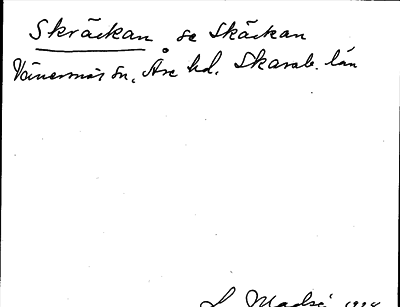 Skräckan se Skäckan
Vänersnäs sn, Åse hd. Skarab. län